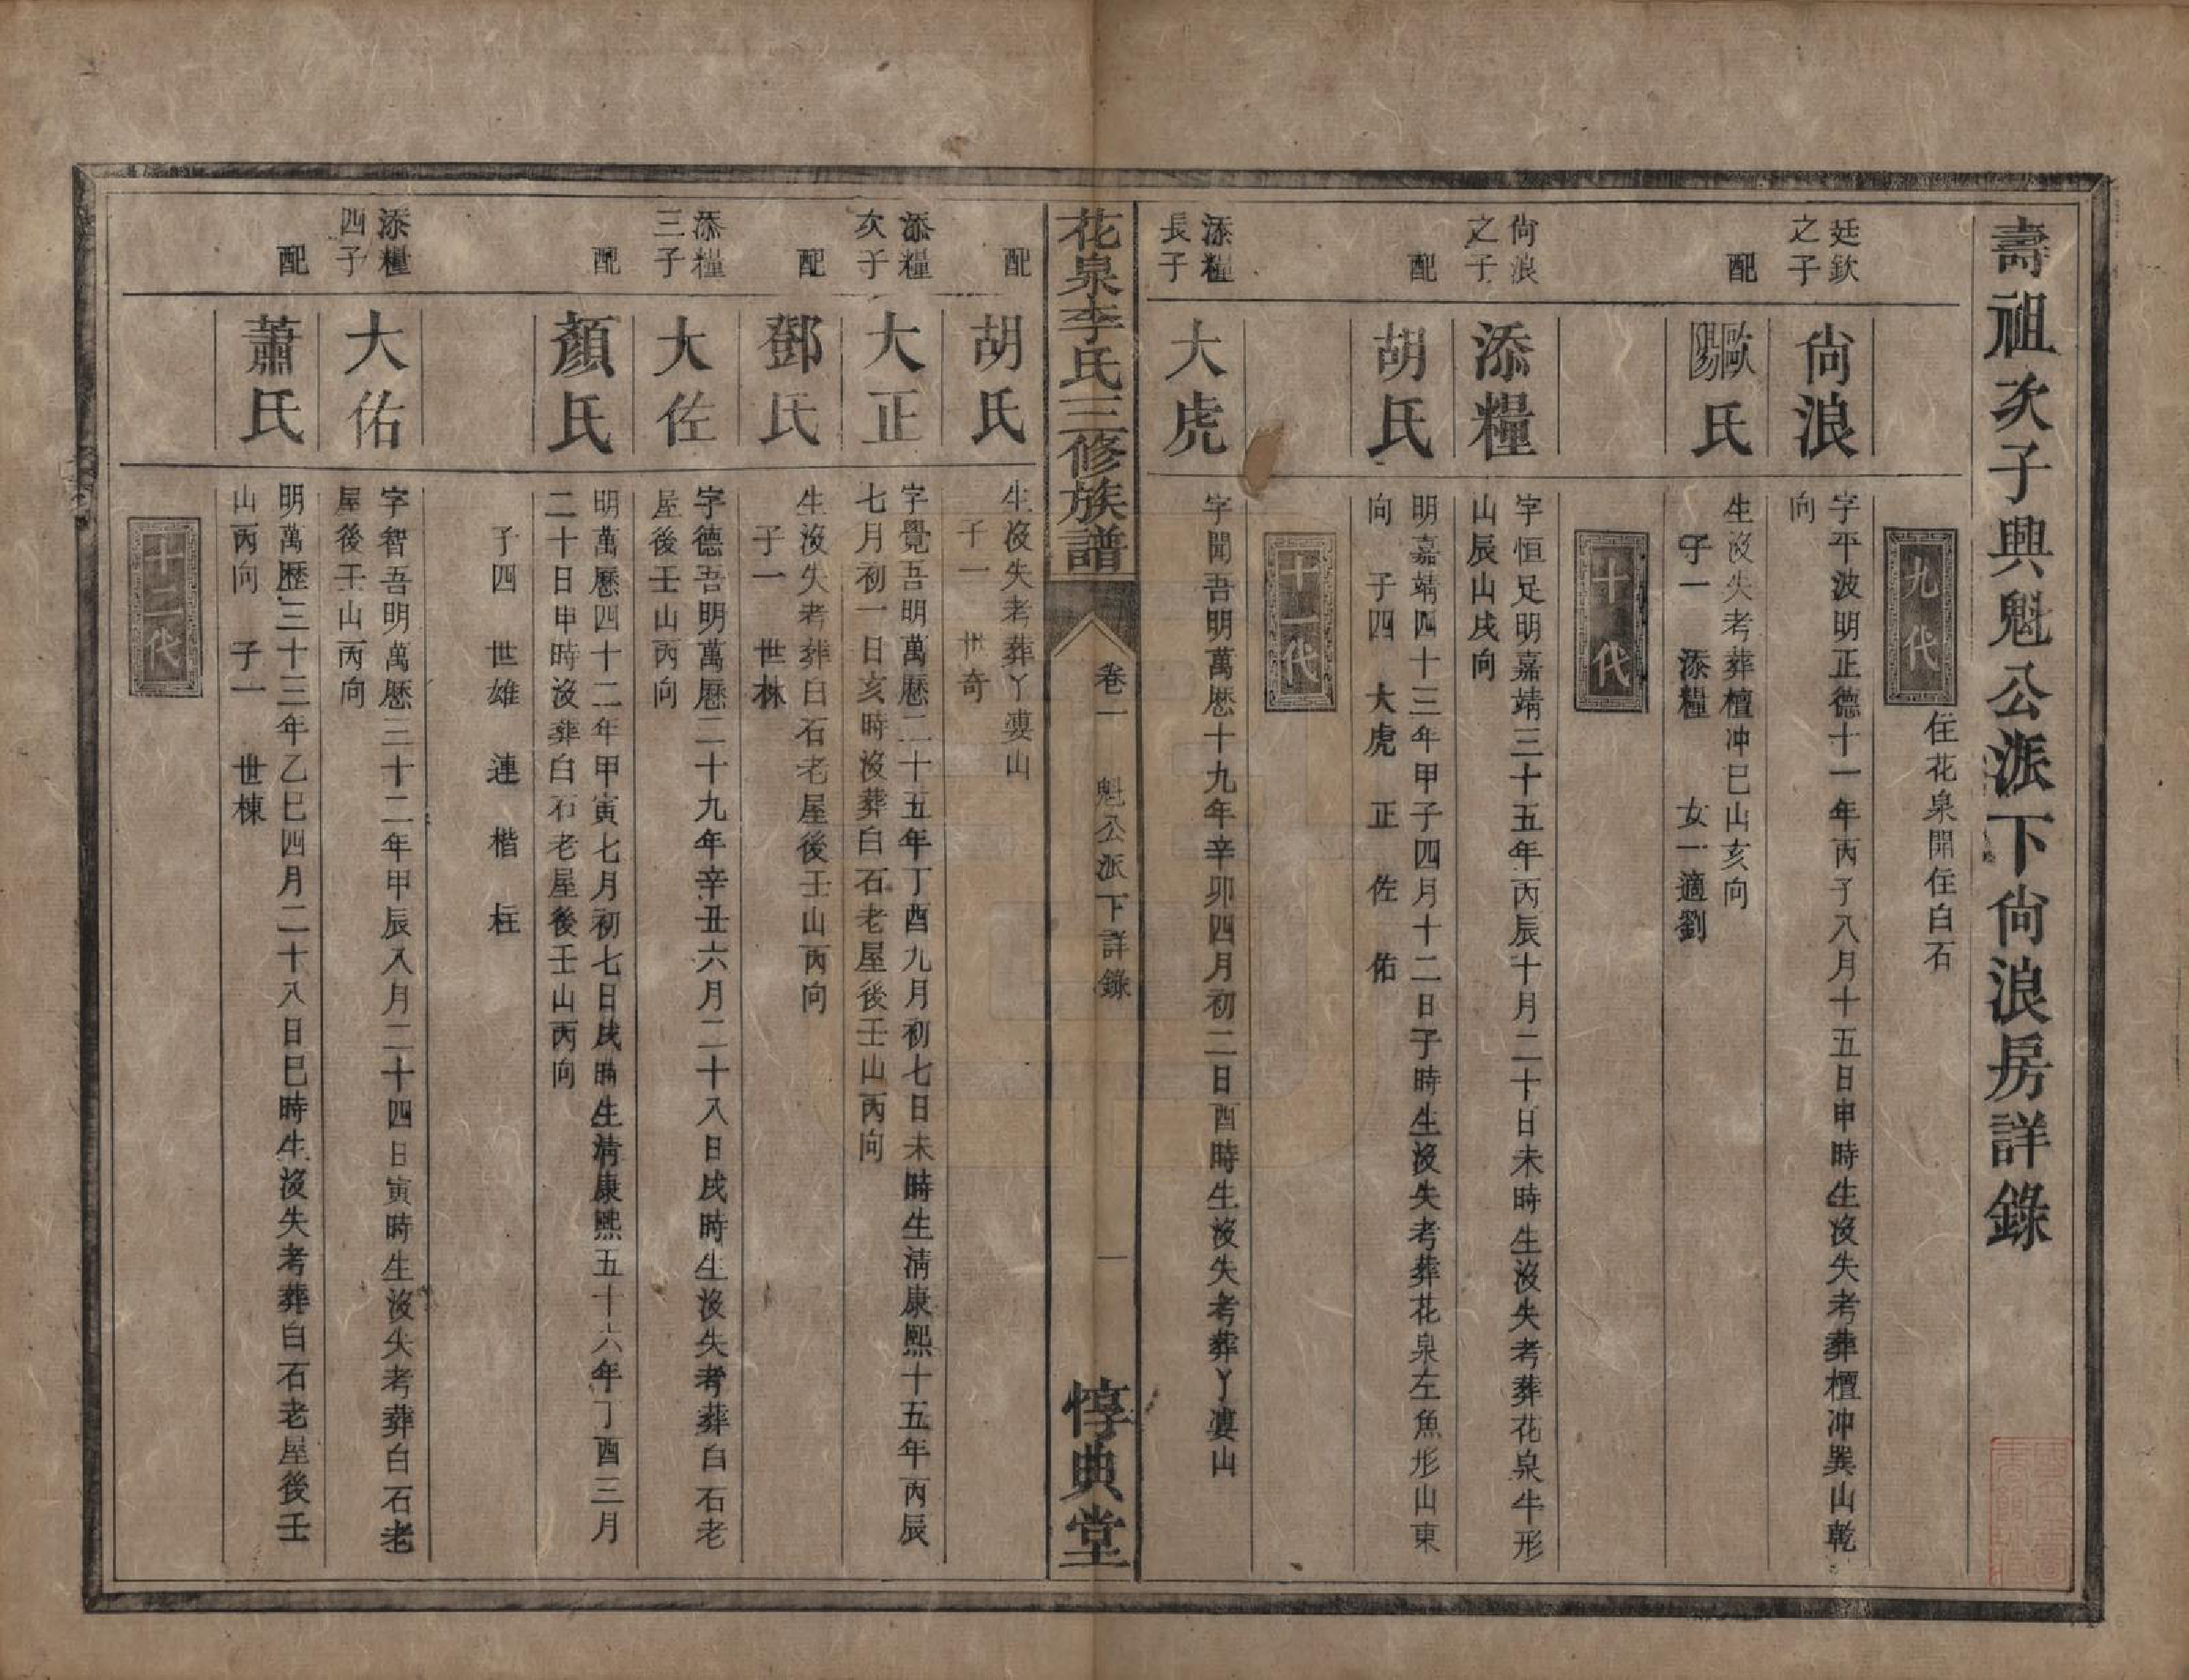 壽祖次子興魁公派下尙浪房詳錄
九代
住花泉開住白石
廷欽
之子
尙浪
字平波明正德十一年丙子八月十五日申時生沒失考葬檀冲巽山乾
向
配
歐陽氏
生沒失考葬檀冲巳山亥向
子一 添糧 女一適劉
十代
尙浪
之子
添糧
字恒足明嘉靖三十五年丙辰十月二十日未時生沒失考葬花泉牛形
山辰山戌向
配
胡氏
明嘉靖四十三年甲子四月十二日子時生沒失考葬花泉左魚形山東
向 子四 大虎 正 佐 佑
十一代
添糧
長子
大虎
字開吾明萬曆十九年辛卯四月初二日酉時生沒失考葬丫婁山
花泉李氏三修族譜
卷一 魁公派下詳錄
一
惇典堂
配
胡氏
生沒失考葬丫婁山
子一 世奇
添糧
次子
大正
字覺吾明萬曆二十五年丁酉九月初七日未時生淸康熙十五年丙辰
七月初一日亥時沒葬白石老屋後壬山丙向
配
鄧氏
生沒失考葬白石老屋後壬山丙向
子一 世林
添糧
三子
大佐
字德吾明萬曆二十九年辛丑六月二十八日戌時生沒失考葬白石老
屋後壬山丙向
配
顏氏
明萬曆四十二年甲寅七月初七日戌時生淸康熙五十六年丁酉三月
二十日申時沒葬白石老屋後壬山丙向
子四 世雄 連 楷 柱
添糧
四子
大佑
字智吾明萬曆三十二年甲辰八月二十四日寅時生沒失考葬白石老
屋後壬山丙向
配
蕭氏
明萬歷三十三年乙巳四月二十八日巳時生沒失考葬白石老屋後壬
山丙向 子一 世棟
十二代